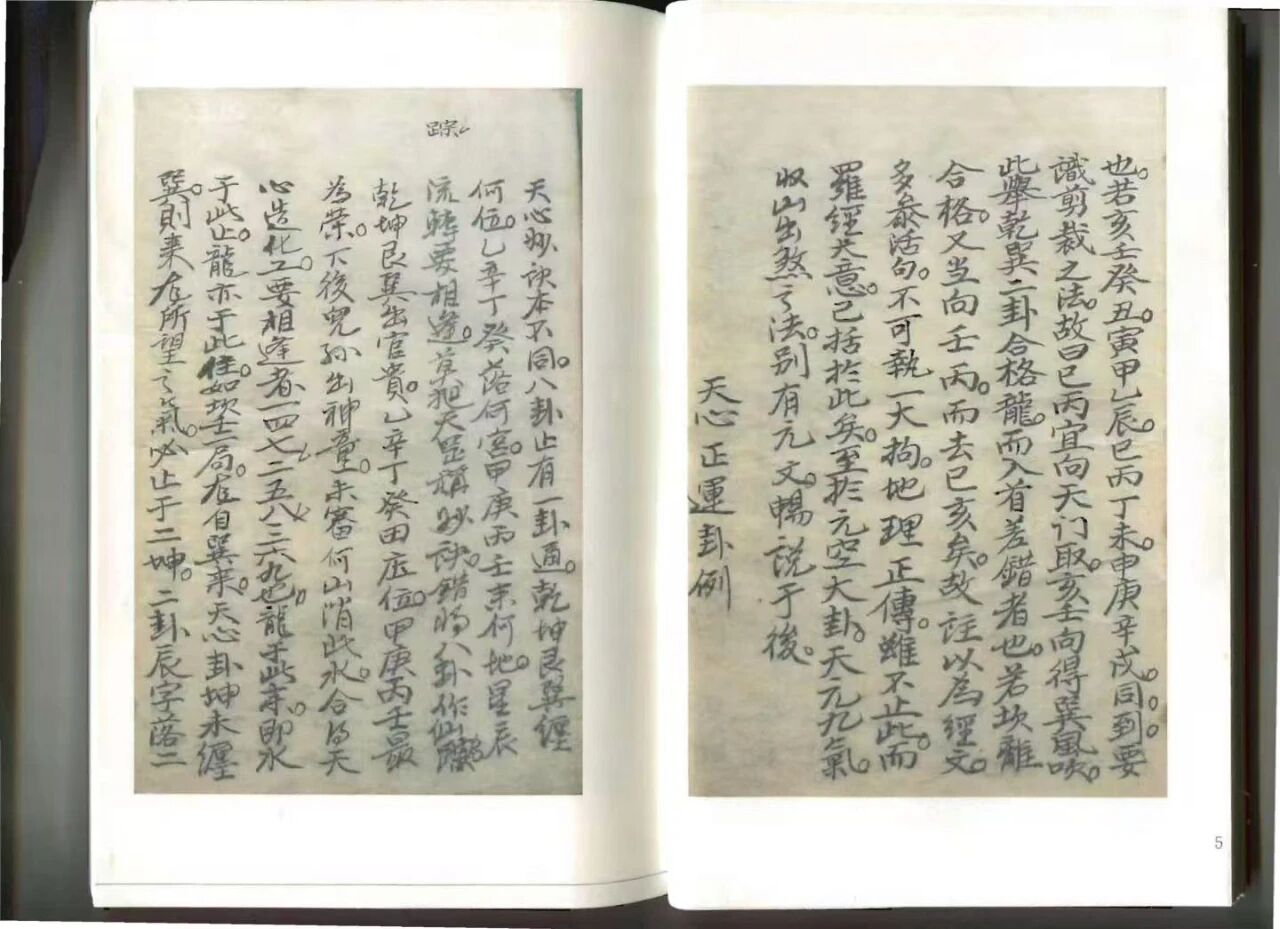 也。若亥壬癸丑。寅甲乙辰。巳丙丁未。申庚辛戌。同到。要。
識剪裁之法。故曰巳丙宜向天门取。亥壬向得巽風吹。
此舉乾巽二卦合格龍。而入首差錯者也。若坎離
合格。又当向壬丙。而去巳亥矣。故註以為經文。
多叅活句。不可執一大拘。地理正傳。雖不止此。而
羅經大意。已括於此矣。至於元空大卦。天元九氣。
收山出煞之法。別有元文。暢説于後。
天心正運卦例
天心妙诀本不同。八卦止有一卦通。乾坤艮巽纏
何位。乙辛丁癸落何宮。甲庚丙壬来何地。星辰
流轉要相逢。莫把天罡稱妙诀。錯將八卦作仙
踪
乾坤艮巽出官貴。乙辛丁癸田庄位。甲庚丙壬最
為荣。下後児孫出神童。未審何山消此水。合得天
心造化工。要相逢者一四七二五八三六九也。龍于此来。即水
于此止。龍亦于此住。如坎壬一局。在自巽来。天心卦坤未纏
巽。則来在所望之氣。必止于二坤。二卦辰字落二
5